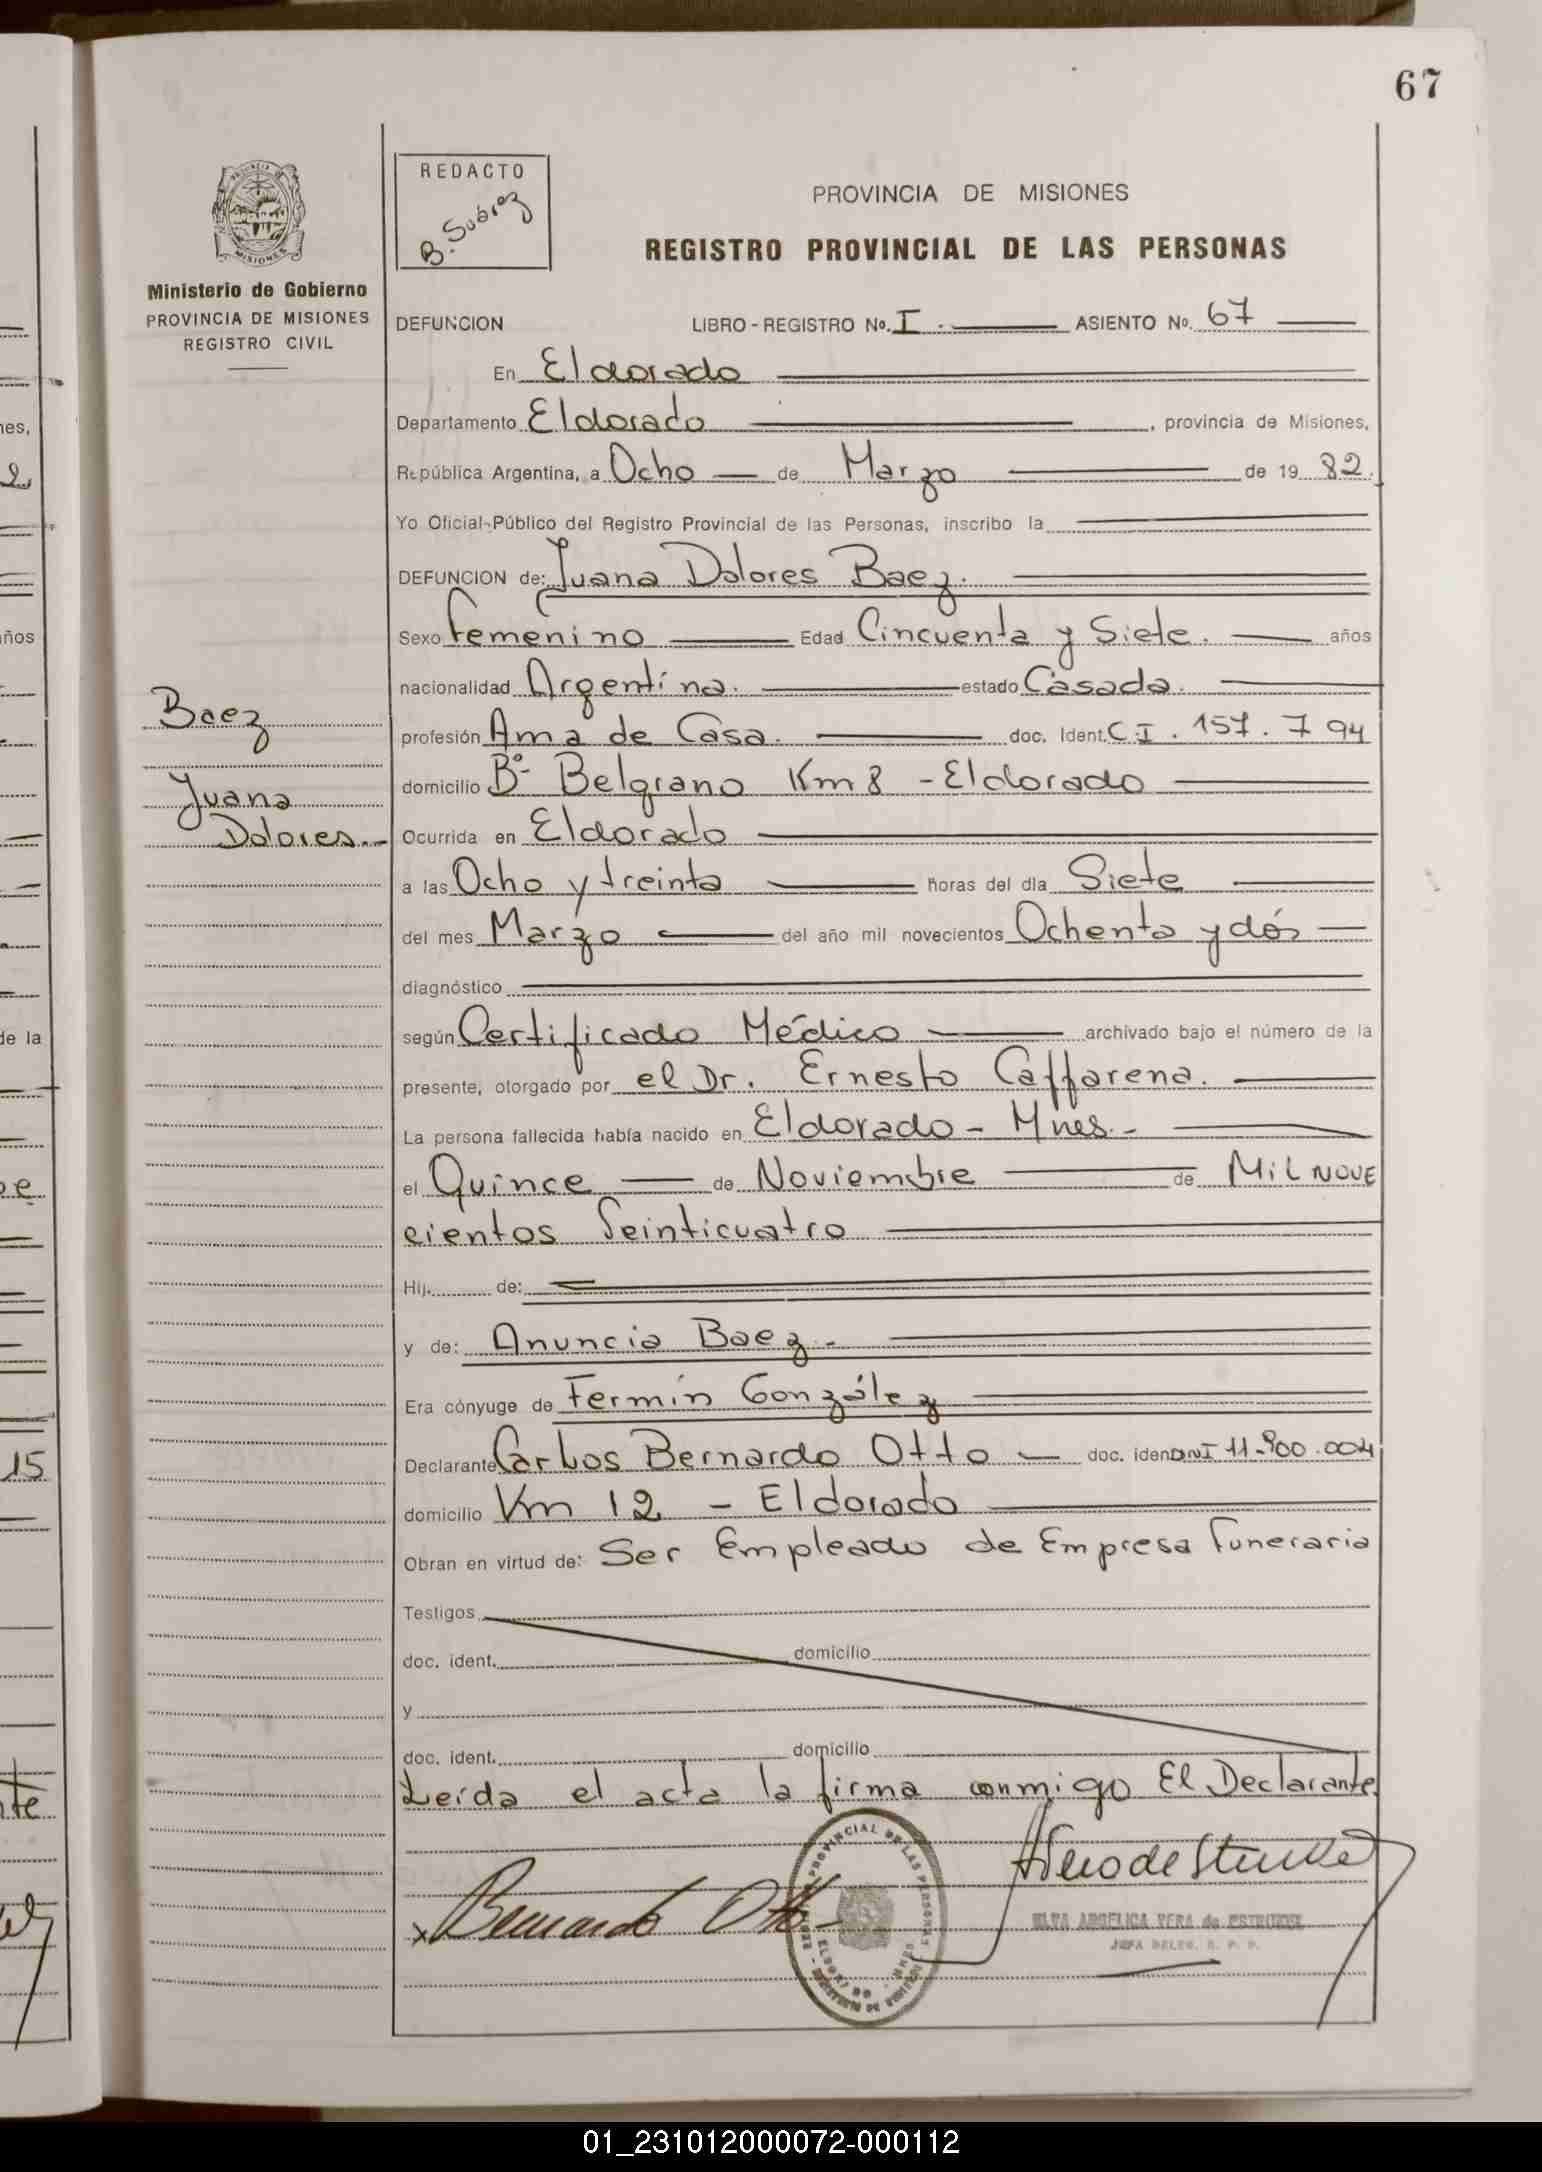 67
REDACTO
B. Suárez
PROVINCIA DE MISIONES
REGISTRO PROVINCIAL DE LAS PERSONAS
Ministerio de Gobierno
PROVINCIA DE MISIONES
REGISTRO CIVIL
DEFUNCION LIBRO - REGISTRO No. I. ASIENTO No. 67
En Eldorado
Departamento Eldorado, provincia de Misiones,
República Argentina, a Ocho de Marzo de 19 82.
Yo Oficial Público del Registro Provincial de las Personas, inscribo la
DEFUNCION de: Juana Dolores Baez.
Sexo Femenino Edad Cincuenta y Siete. años
nacionalidad Argentína. estado Casada.
profesión Ama de Casa. doc. Ident. C.I. 157.794
domicilio Bº- Belgrano Km 8 - Eldorado
Ocurrida en Eldorado
a las Ocho y treinta horas del día Siete
del mes Marzo del año mil novecientos Ochenta y dós
diagnóstico
según Certificado Médico archivado bajo el número de la
presente, otorgado por el Dr. Ernesto Caffarena.
La persona fallecida había nacido en Eldorado - Mnes.-
el Quince de Noviembre de Mil nove
cientos Veinticuatro
Hij. de:
y de: Anuncia Baez.-
Era cónyuge de Fermín González
Declarante Carlos Bernardo Otto doc. iden DNI 11.900.004
domicilio Km 12 - Eldorado
Obran en virtud de: Ser Empleado de Empresa Funeraria
Testigos
doc. ident. domicilio
y
doc. ident. domicilio
Leída el acta la firma conmigo El Declarante
Bernardo Otto
ELVA ANGELICA VERA de
JEFA DELEG. R. P. P.
Baez
Juana
Dolores.-
MISIONES
ños
de la
15
01_231012000072-000112